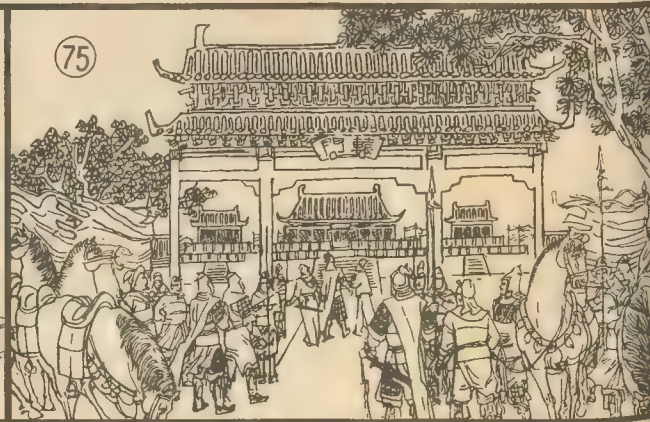 75
轅門